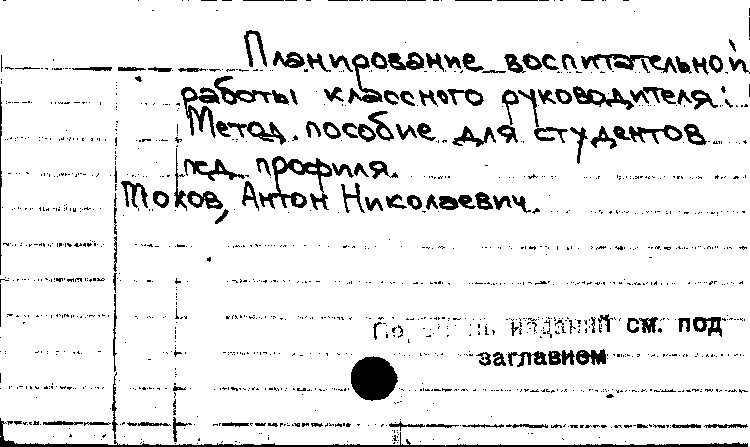 Планирование воспитательной
работы классного руководителя:
Метод. пособие для студентов
пед. профиля.
Токов, Антон Николаевич.
изданий см. под
заглавием